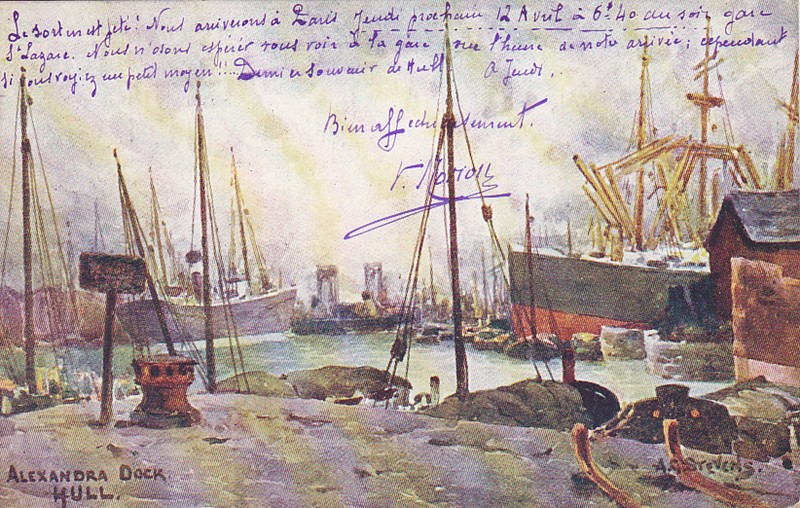 Le sort en est jeté! Nous arriverons à Paris Jeudi prochain 12 Avril à 6h.40 du soir gare
St Lazare. Nous n'osons espérer vous voir à la gare vue l'heure de notre arrivée; cependant
si vous voyiez un petit moyen!!... Dernier souvenir de Hull à Jeudi.
Bien affectueusement.
V.
ALEXANDRA DOCK.
HULL.
A. Stevens.